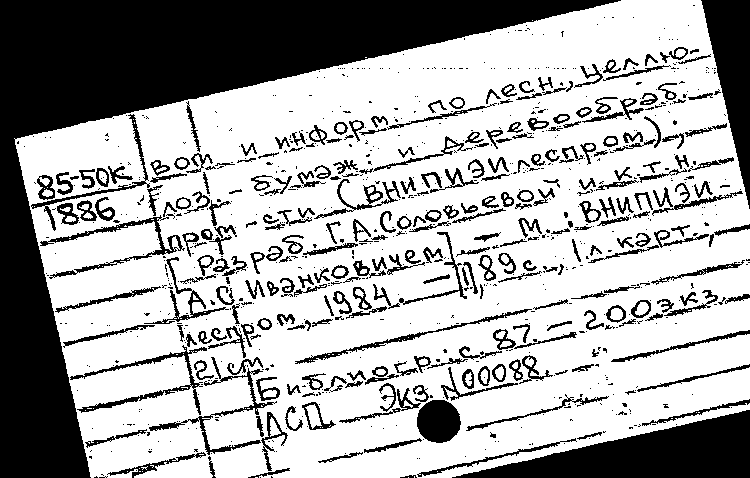 вот и информ. по лесн., целлю-
85-50К лоз.-бумаж. и деревообраб.
1886 пром-сти (ВНИПИЭИлеспром);
[Разраб. Г.А.Соловьевой и к.т.н.
А.С.Иванковичем]. — М. : ВНИПИЭИ-
леспром, 1984. — 89 с., 1 л. карт.;
21 см.
Библиогр.: с. 87. — 200 экз.
ДСП. Экз. N00088.